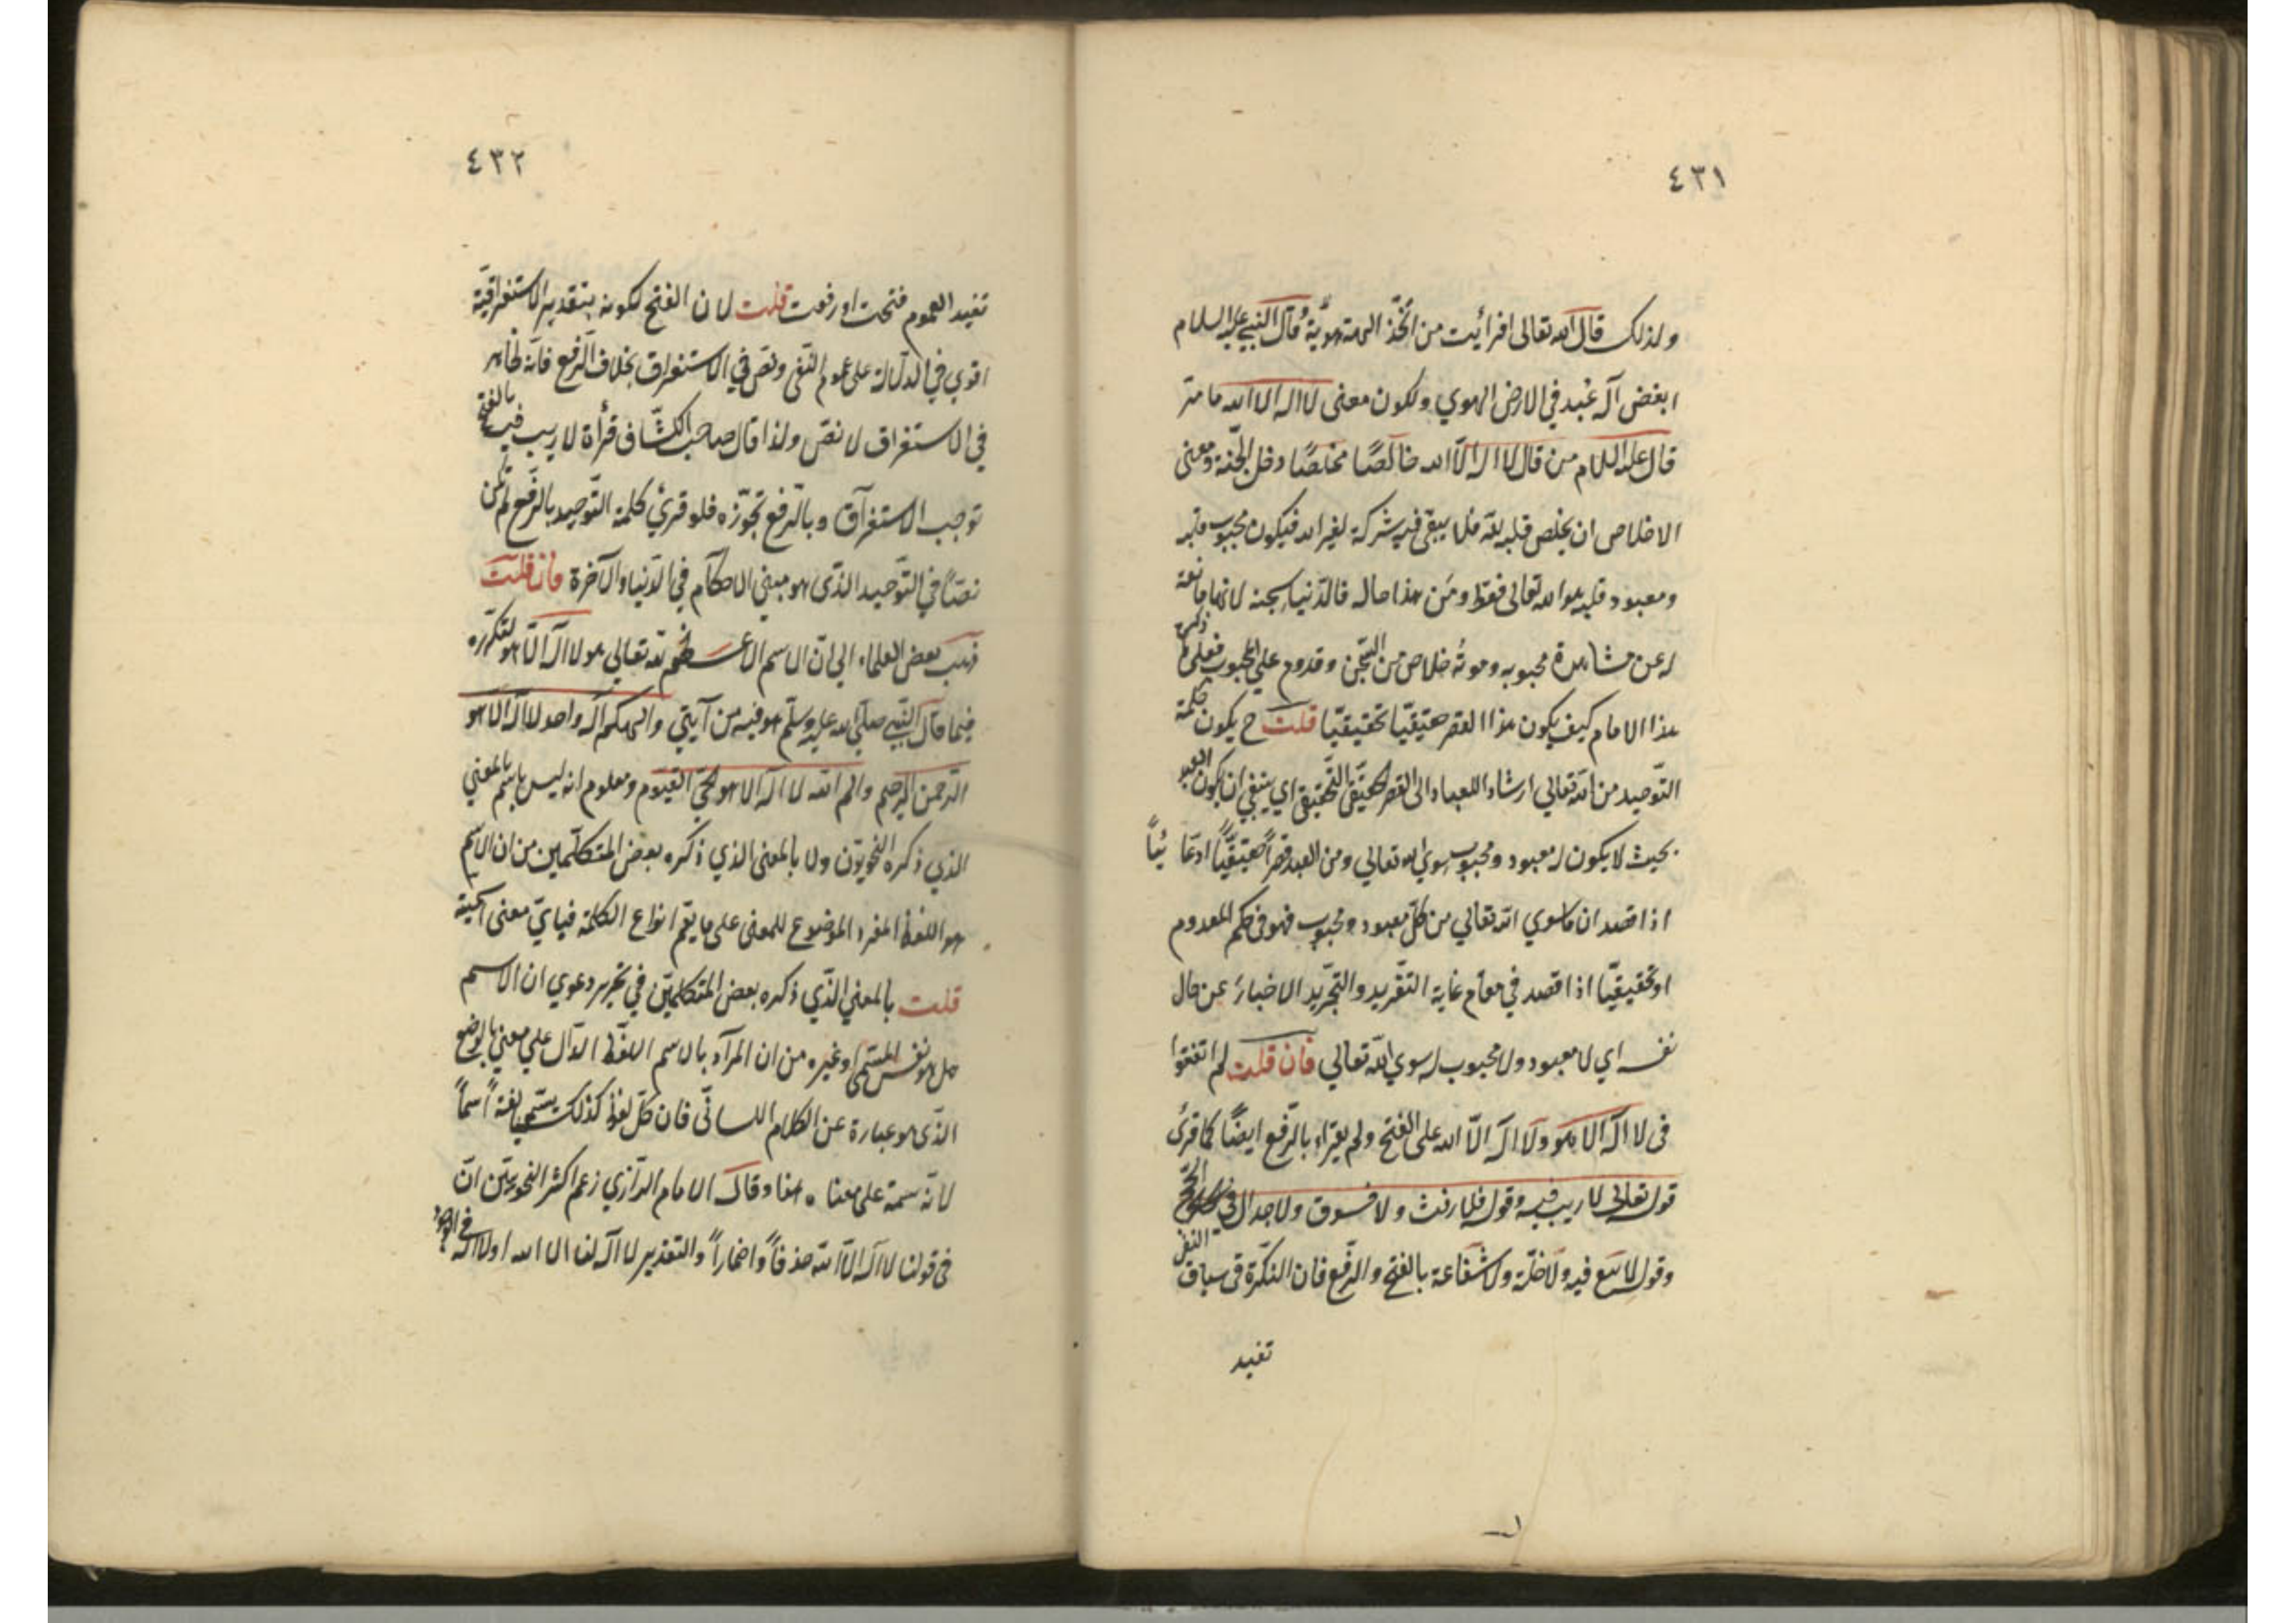 ٤٣١
ولذلك قال الله تعالى افرأيت من اتخذ الهه هويه وقال النبي عليه السلام
ابغض اله عبد في الارض الهوي ولكون معنى لا اله الا الله ما مر
قال عليه السلام من قال لا اله الا الله خالصًا مخلصًا دخل الجنة ومعنى
الاخلاص ان يخلص قلبه لله فلا يبقى فيه شركة لغير الله فيكون محبوب قلبه
ومعبود قلبه هو الله تعالى فقط ومن هذا حاله فالدنيا سجنه لانها مانعة
له عن مشاهدة محبوبه وموته خلاص من السجن وقدوم على المحبوب فعلى ما ذكره
هذا الامام كيف يكون هذا القصر حقيقيًا تحقيقيًا قلت ح يكون كلمة
التوحيد من الله تعالي ارشاد العباد الى القصر الحقيقي التحقيقي اي ينبغي ان يكون العبد
بحيث لا يكون له معبود ومحبوب سوي الله تعالي ومن العبد قصرًا حقيقيًا ادعائيًا
اذا قصد ان ما سوي الله تعالي من كل معبود ومحبوب فهو في حكم المعدوم
او تحقيقيًا اذا قصد في مقام غاية التفريد والتجريد الاخبار عن حال
نفسه اي لا معبود ولا محبوب له سوي الله تعالي فان قلت لم اتفقوا
في لا اله الا هو ولا اله الا الله على الفتح ولم يقراء بالرفع ايضًا كما قرئ
قوله تعالى لا ريب فيه وقوله فلا رفث ولا فسوق ولا جدال في الحج
وقوله لا بيع فيه ولا خلة ولا شفاعة بالفتح والرفع فان النكرة في سياق النفي
تفيد
٤٣٢
تفيد العموم فتحت او رفعت قلت لان الفتح لكونه بتقدير الاستغراقية
اقوي في الدلالة على عموم النفي ونص في الاستغراق بخلاف الرفع فانه ظاهر
في الاستغراق لا نص ولذا قال صاحب الكشاف قرأة لا ريب فيه بالفتح
توجب الاستغراق وبالرفع تجوزه فلو قرئ كلمة التوحيد بالرفع لم تكن
نصًا في التوحيد الذي هو مبنى الاحكام في الدنيا والآخرة فان قلت
ذهب بعض العلماء الي ان الاسم الاعظم لله تعالي هو لا اله الا هو لتكرره
فيما قال النبي صلي الله عليه وسلم هو فيه من آيتي والهكم اله واحد لا اله الا هو
الرحمن الرحيم والم الله لا اله الا هو الحي القيوم ومعلوم انه ليس باسم بالمعني
الذي ذكره النحويون ولا بالمعنى الذي ذكره بعض المتكلمين من ان الاسم
هو اللفظ المفرد الموضوع للمعنى على ما يعم انواع الكلمة فباي معنى اسميته
قلت بالمعني الذي ذكره بعض المتكلمين في تحرير دعوي ان الاسم
هل هو نفس المسمى او غيره من ان المراد بالاسم اللفظ الدال علي معني بالوضع
الذي هو عبارة عن الكلام اللساني فان كل لفظ كذلك يسمي لغة اسماً
لانه سمة على معناه هنا وقال الامام الرازي زعم اكثر النحويين ان
في قولنا لا اله الا الله حذفاً واضماراً والتقدير لا اله لنا الا الله او لا اله في الوجود